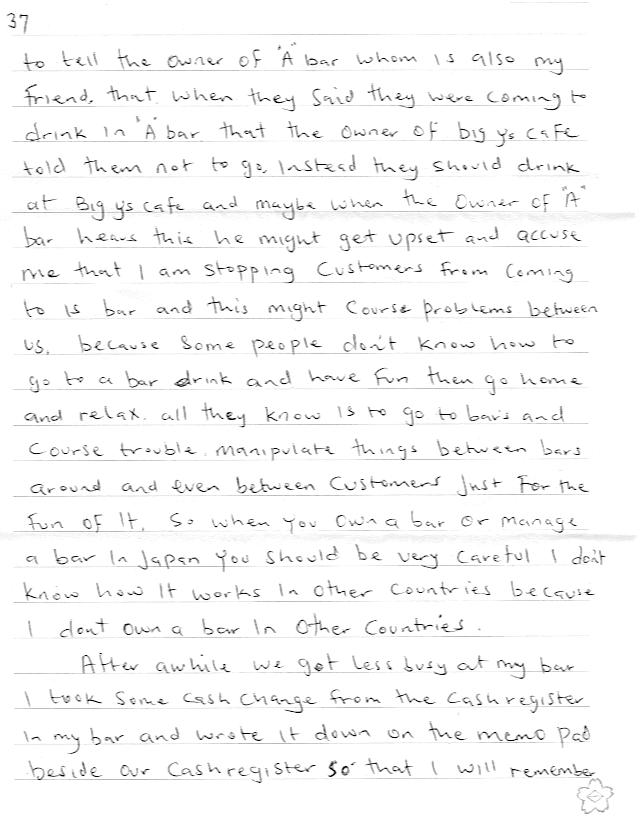 37
to tell the owner of "A" bar whom is also my
friend, that when they said they were coming to
drink in "A" bar that the owner of big y's cafe
told them not to go, Instead they should drink
at Big y's cafe and maybe when the Owner of "A"
bar hears this he might get upset and accuse
me that I am stopping Customers from Coming
to is bar and this might Course problems between
us, because some people don't know how to
go to a bar drink and have fun then go home
and relax. all they know is to go to bars and
Course trouble, manipulate things between bars
around and even between Customers Just For the
Fun of It. So when you own a bar or manage
a bar In Japan you should be very careful I don't
know how It works In other Countries because
I dont own a bar In other Countries.
After awhile we got less busy at my bar
I took some cash change from the Cashregister
In my bar and wrote It down on the memo pad
beside our Cashregister so that I will remember